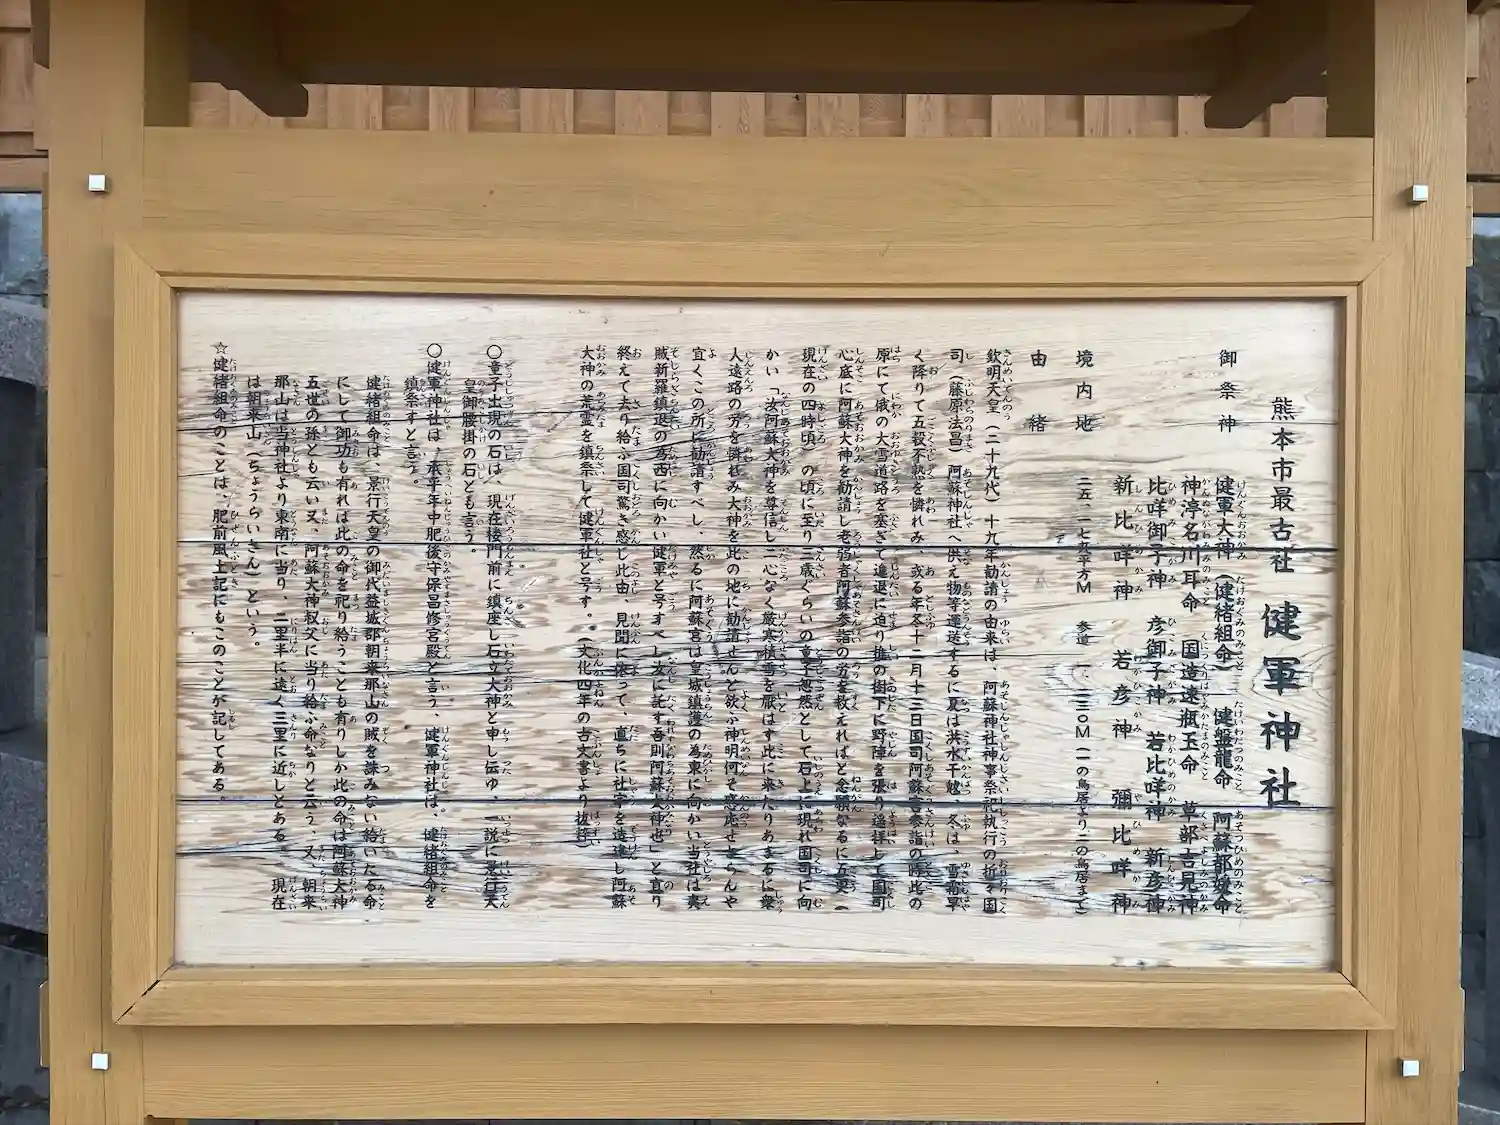 熊本市最古社　健軍神社
御祭神
健軍大神（健緒組命）　健盤龍命　阿蘇都媛命
神渟名川耳命　国造速瓶玉命　草部吉見神
比咩御子神　彦御子神　若比咩神　新彦神
新比咩神　若彦神　彌比咩神
境内地　二五、一七九平方M　参道　一、二三〇M（一の鳥居より二の鳥居まで）
由緒
欽明天皇（二十九代）十九年勧請の由来は、阿蘇神社神事祭祀執行の折々国
司（藤原法昌）阿蘇神社へ供え物等運送するに夏は洪水干魃、冬は、雪霜早
く降りて五穀不熟を憐れみ、或る年冬十二月十三日国司阿蘇宮参詣の時此の
原にて俄の大雪道路を塞ぎて進退に迫り椎の樹下に野陣を張り遥拝して国司
心底に阿蘇大神を勧請し老弱者阿蘇参詣の労を救えればと念願なるに五更（
現在の四時頃）の頃に至り三歳ぐらいの童子忽然として石上に現れ国司に向
かい「汝阿蘇大神を尊信し二心なく厳寒積雪を厭はず此に来たりあまるに衆
人遠路の労を憐れみ大神を此の地に勧請せんと欲ふ神明何ぞ感応せざらんや
宜くこの所に勧請すべし、然るに阿蘇宮は皇城鎮護の為東に向かい当社は夷
賊新羅鎮退の為西に向かい健軍と号すべし女に託す吾則阿蘇大神也」と宣り
終えて去り給ふ国司驚き感じ此由、見聞に依って、直ちに社宇を造建し阿蘇
大神の荒霊を鎮祭して健軍社と号す。（文化四年の古文書より抜粋）
〇童子出現の石は、現在楼門前に鎮座し石立大神と申し伝ゆ、一説に景行天
皇御腰掛の石とも言う。
〇健軍神社は、承平年中肥後守保昌修宮殿と言う、健軍神社は、健緒組命を
鎮祭すと言う。
健緒組命は、景行天皇の御代益城郡朝来那山の賊を誅みない給いたる命
にして御功も有れば此の命を祀り給うことも有りしか此の命は阿蘇大神
五世の孫とも云い又、阿蘇大神叔父に当り給ふ命なりと云う、又、朝来
那山は当神社より東南に当り、二里半に遠く三里に近しとある。現在
は朝来山（ちょうらいさん）という。
☆健緒組命のことは、肥前風土記にもこのことが記してある。